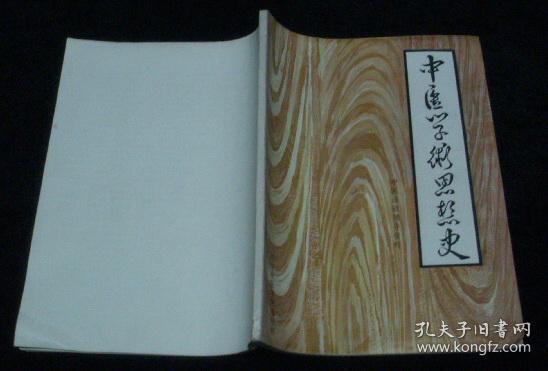 中医学术思想史
孔夫子旧书网
www.kongfz.com